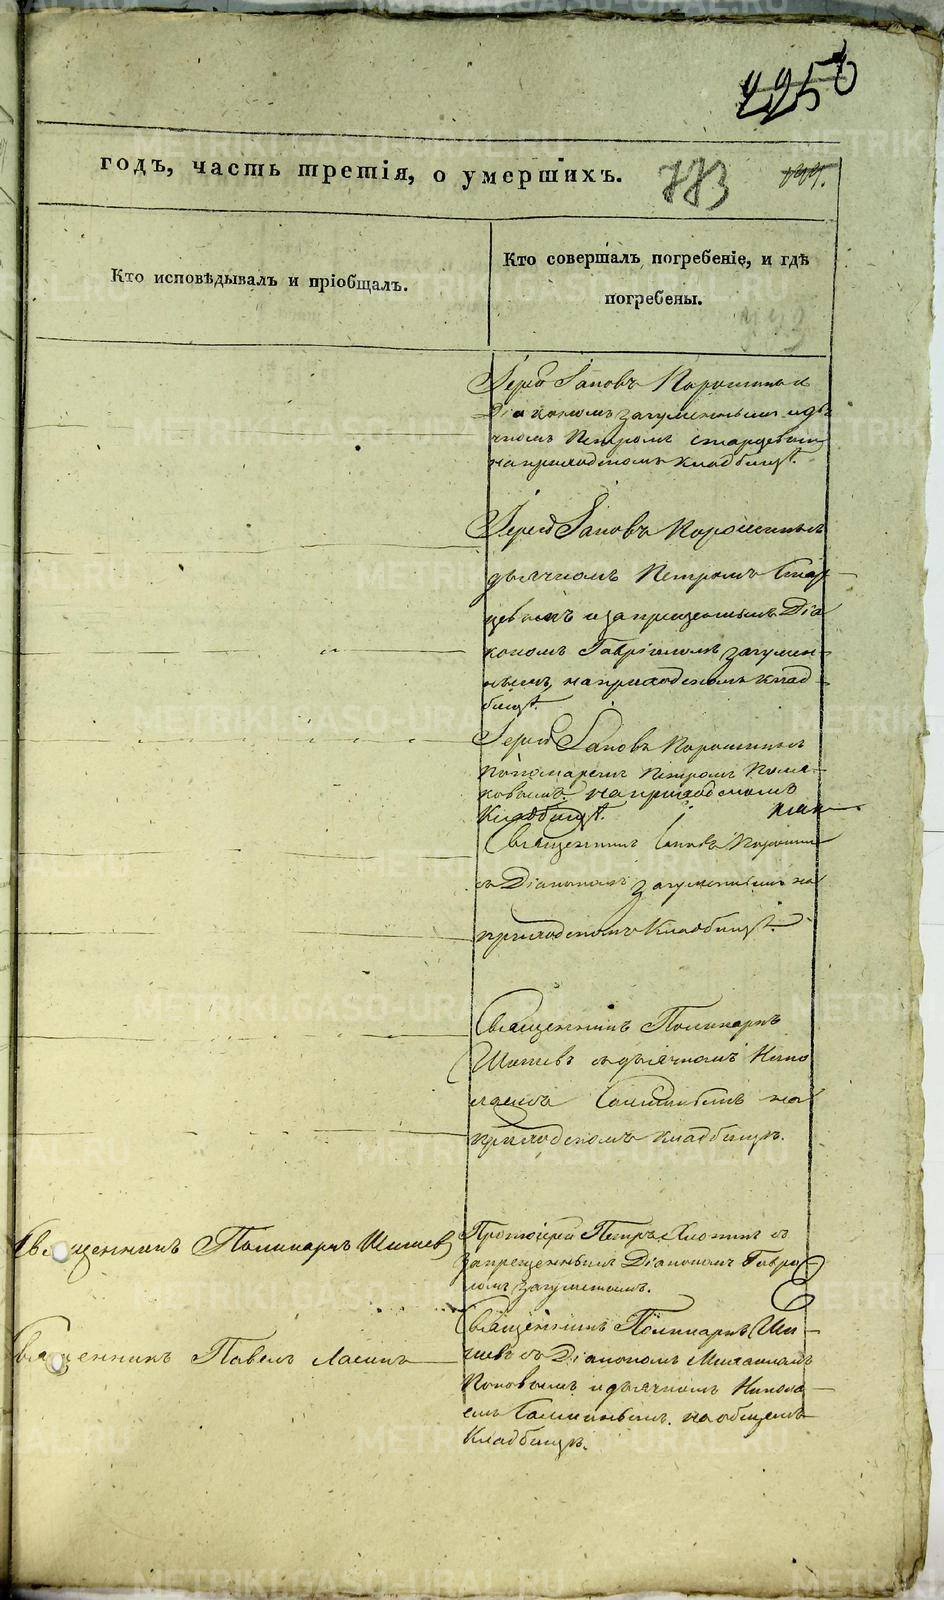 225
годъ, часть третія, о умершихъ. 773
Кто исповѣдывалъ и пріобщалъ.
Кто совершалъ погребеніе, и гдѣ
погребены.
Іерей Іаковъ Порошинъ с
Діакономъ Загуменнымъ и дья
чкомъ Петромъ Старцевым
на приходскомъ кладбищѣ.
Іерей Іаковъ Порошинъ с
дьячкомъ Петромъ Стар-
цевымъ и запрещеннымъ Діа
кономъ Гавріиломъ Загумен-
нымъ, на приходскомъ клад-
бищѣ.
Іерей Іаковъ Порошинъ с
пономаремъ Петромъ
на приходскомъ
кладбищѣ.
Священникъ Іаковъ Порошин
съ Діакономъ Загуменнымъ на
приходскомъ кладбищѣ.
Священникъ Поликарпъ
Шишевъ съ дьячкомъ Нико
лаемъ на
приходскомъ кладбищѣ.
Священникъ Поликарпъ Шишев
Протоіерей Петръ с
запрещеннымъ Діакономъ Гаврі
ломъ Загуменнымъ.
Священникъ Павелъ
Священникъ Поликарпъ Ши-
шевъ съ Діакономъ Михаиломъ
Поповымъ и дьячкомъ Никола-
емъ на общемъ
кладбищѣ.
METRIKI.GASO-URAL.RU